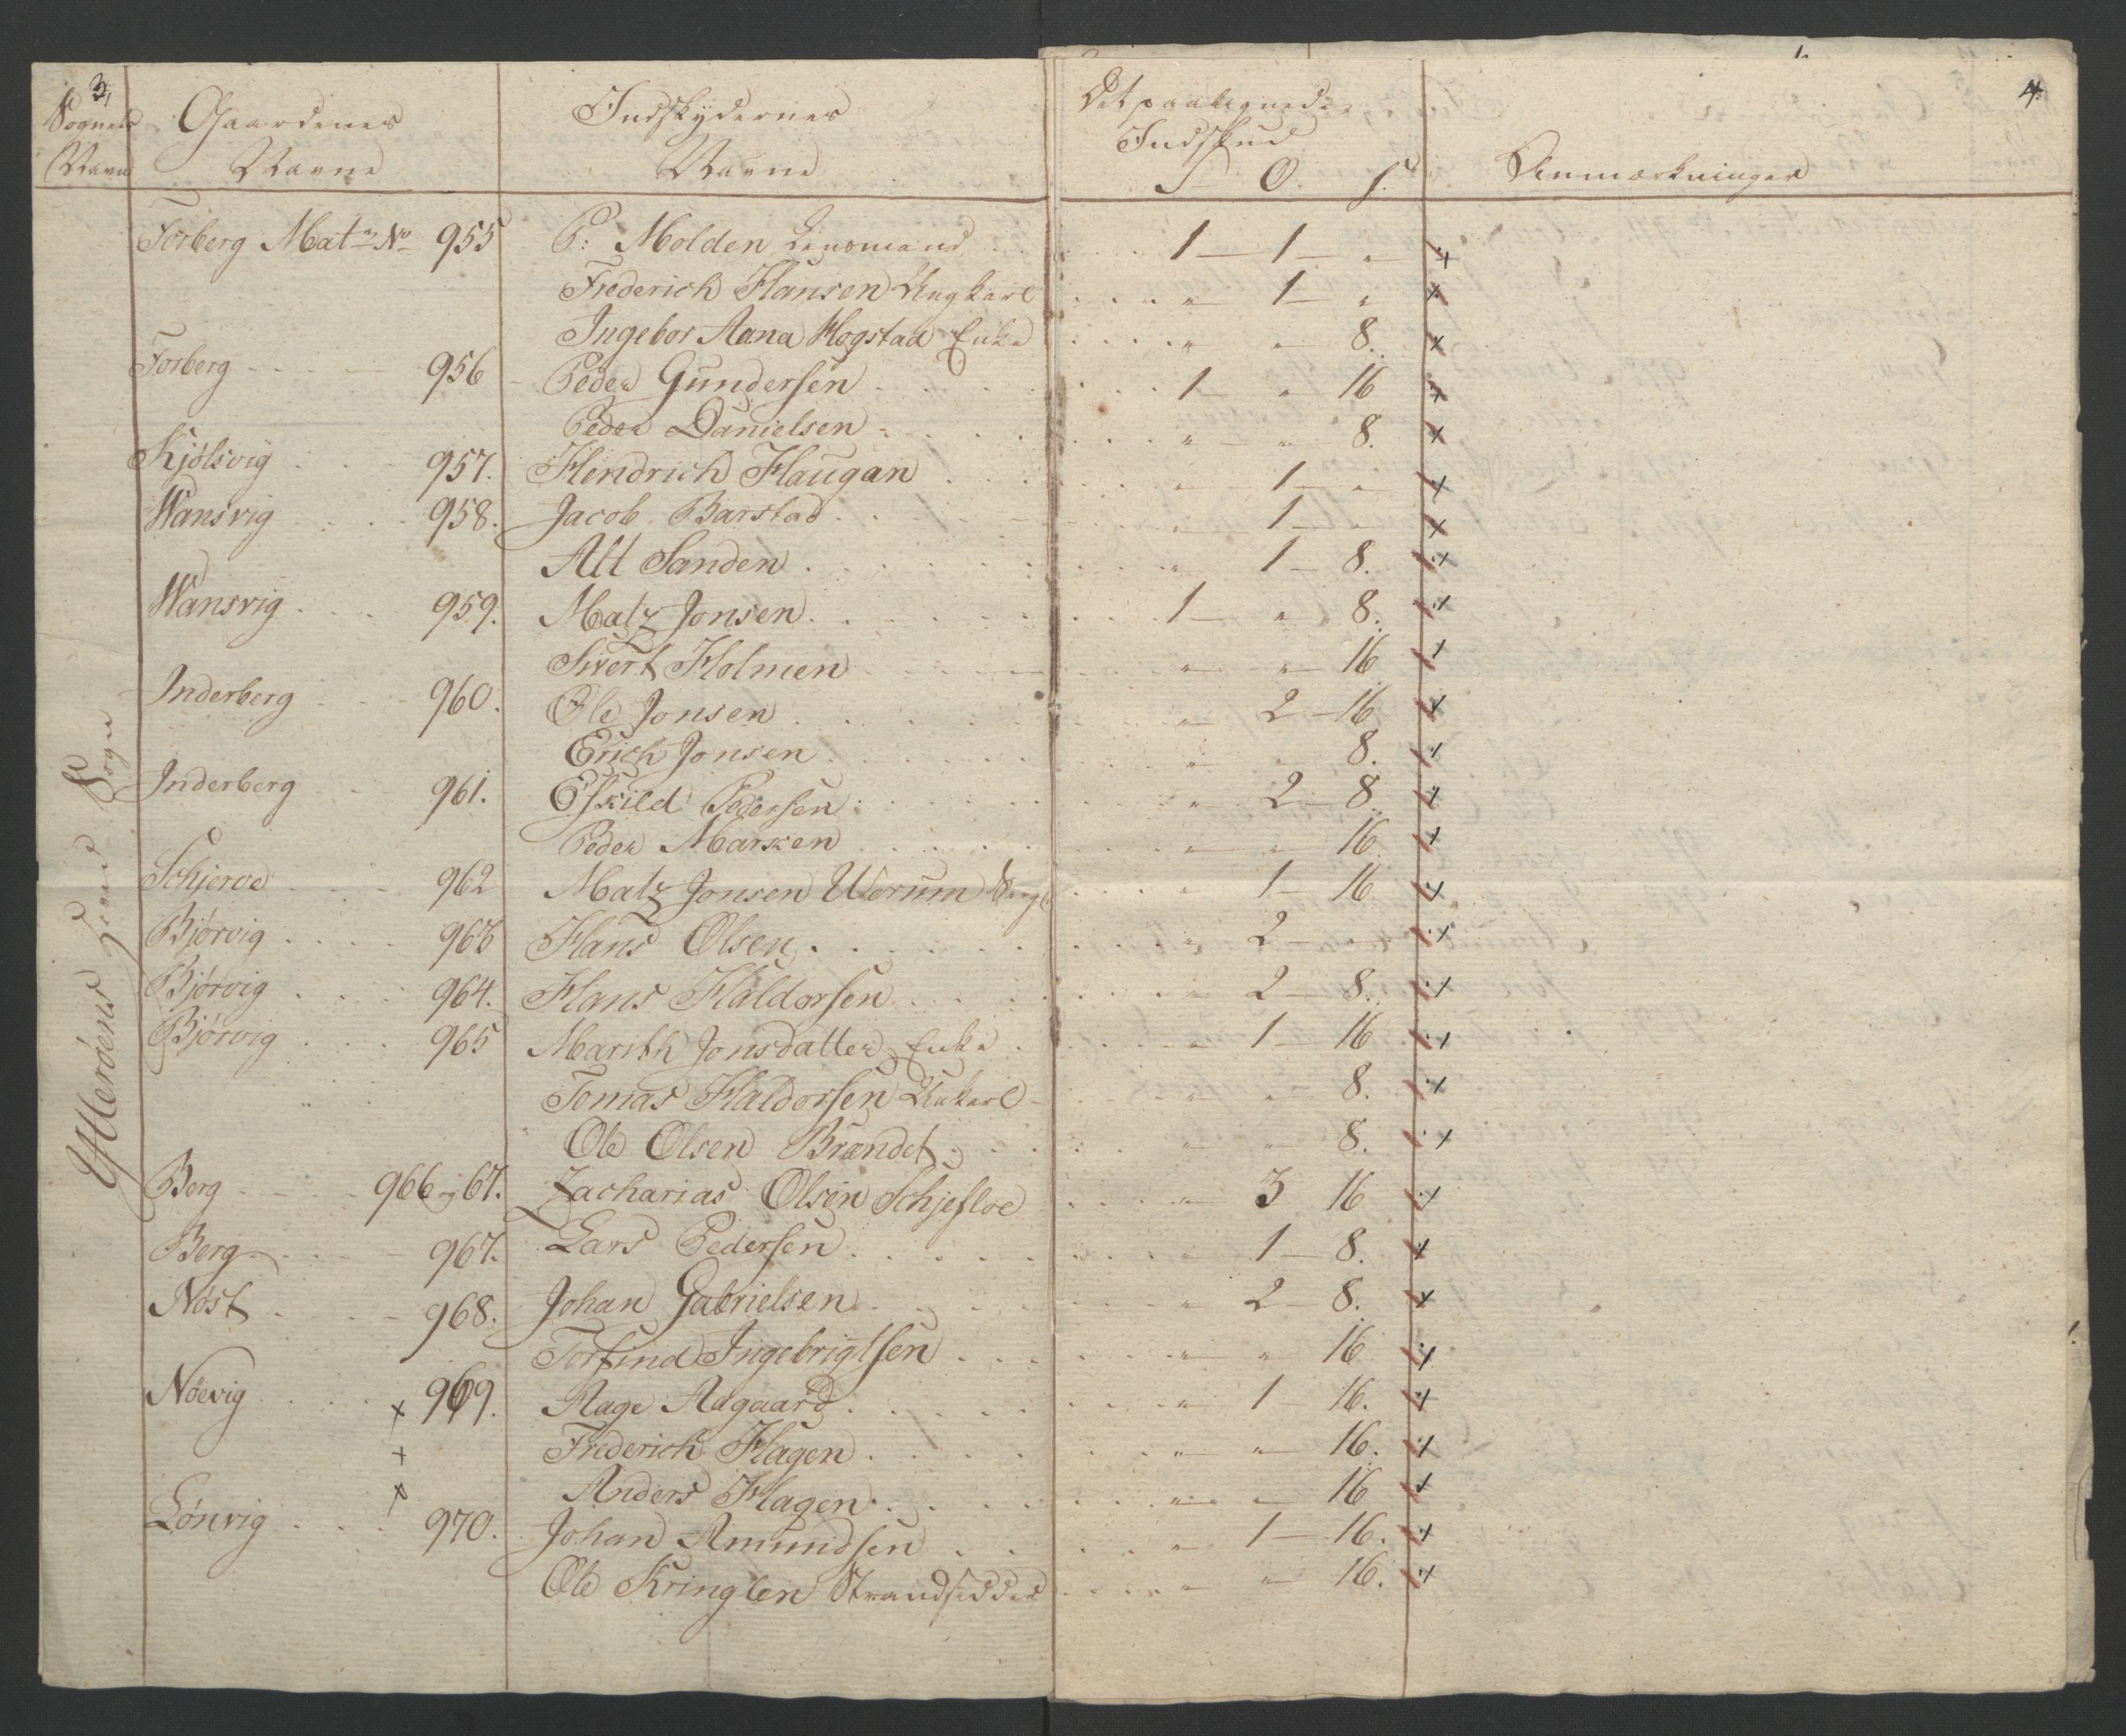 3,
4.
Sognets Navn | Gaardenes Navne | Indskydernes Navne | Det paalignede Indskud S O s. | Anmærkninger
Ytterøens Sogn
Forberg Mat. No 955 P: Molden Lensmand 1 - 1 - " +
Frederich Hansen Ungkarl " 1 - " +
Ingebor Aana Hogstad Enke " " 8. +
Forberg 956 Peder Gundersen 1 - " 16 +
Peder Danielsen " " 8. +
Kjølsvig 957. Hendrich Haugan " 1 - " +
Wansvig 958. Jacob Barstad " 1 - " +
Alt Sanden " 1 - 8. +
Wansvig 959. Matz Jonsen 1 - " 8. +
Sivert Holmen " " 16 +
Inderberg 960. Ole Jonsen " 2 - 16 +
Erich Jonsen " " 8. +
Inderberg 961. Eskild Pedersen " 2 - 8 +
Peder Marsken " " 16 +
Schjerve 962 Matz Jonsen Uvrum " 1 - 16 +
Bjørvig 963 Hans Olsen " 2 - " +
Bjørvig 964. Hans Haldorsen " 2 - 8. +
Bjørvig 965 Marith Jonsdatter Enke " 1 - 16 +
Tomas Haldorsen Unkarl " " 8. +
Ole Olsen Brandet " " 8. +
Berg 966 og 67. Zacharias Olsen Schjefloe " 3 16 +
Berg 967. Lars Pedersen " 1 - 8. +
Nøst 968. Johan Gabrielsen " 2 - 8. +
Torfind Ingebrigtsen " " 16 +
Nøevig + 969. Aage Aagaard " 1 16. +
+ Frederich Hagen " " 16. +
+ Anders Hagen " " 16 +
Lønvig 970. Johan Amundsen " 1 - 16. +
Ole Kringlen Strandsidder " " 16. +